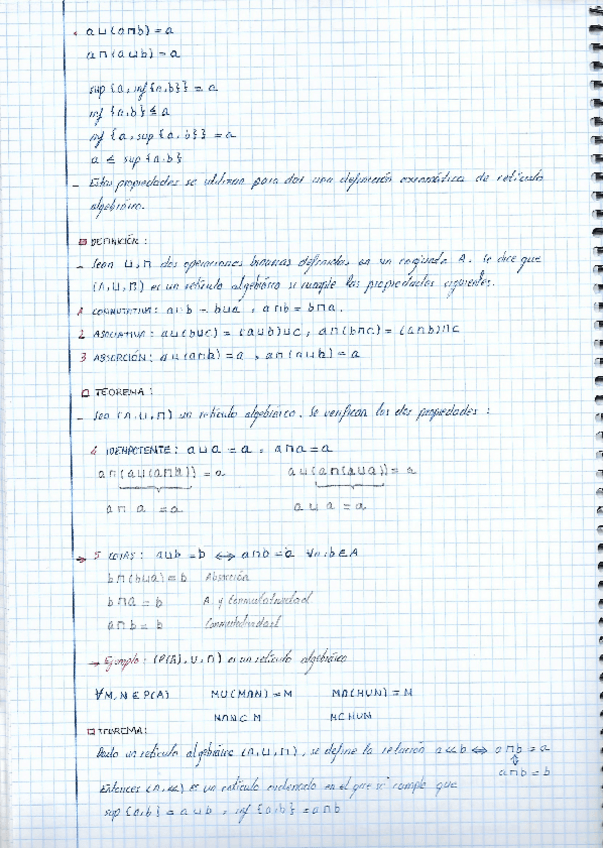 a ⊔ (a⊓b) = a
a ⊓ (a⊔b) = a
sup {a, inf{a,b}} = a
inf {a,b} ≤ a
inf {a, sup {a,b}} = a
a ≤ sup {a,b}
- Estas propiedades se utilizan para dar una definición axiomática de retículo
algebráico.
DEFINICIÓN:
- Sean ⊔,⊓ dos operaciones binarias definidas en un conjunto A. Se dice que
(A,⊔,⊓) es un retículo algebráico si cumple las propiedades siguientes.
1 CONMUTATIVA: a⊔b = b⊔a, a⊓b = b⊓a.
2 ASOCIATIVA: a⊔(b⊔c) = (a⊔b)⊔c, a⊓(b⊓c) = (a⊓b)⊓c
3 ABSORCIÓN: a⊔(a⊓b) = a, a⊓(a⊔b) = a
TEOREMA:
- Sea (A,⊔,⊓) un retículo algebráico. Se verifican las dos propiedades:
4 IDEMPOTENTE: a⊔a = a, a⊓a = a
a⊓(a⊔(a⊓a)) = a a⊔(a⊓(a⊔a)) = a
a⊓ a = a a⊔a = a
→ 5 : a⊔b = b ⟺ a⊓b = a ∀a,b∈A
b⊓(b⊔a) = b Absorción
b⊓a = b A y Conmutatividad
a⊓b = b Conmutatividad
→ Ejemplo: (P(A),∪,∩) es un retículo algebráico
∀M,N∈P(A) M∪(M∩N) = M M∩(M∪N) = M
M∩N⊂M M⊂M∪N
TEOREMA:
Dado un retículo algebráico (A,⊔,⊓), se define la relación a≪b ⟺ a⊓b = a
⇕
a⊓b = b
Entonces (A,≪) es un retículo ordenado en el que se cumple que
sup {a,b} = a⊔b, inf {a,b} = a⊓b